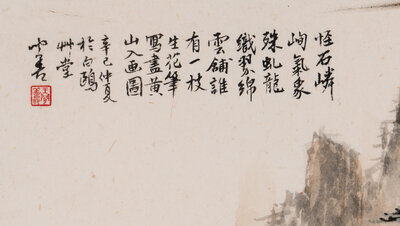 怪石嶙
峋氣象
殊虬龍
織翠綿
雲舖誰
有一枝
生花筆
寫盡黃
山入画圖
辛巳仲夏
於白鷗
艸堂